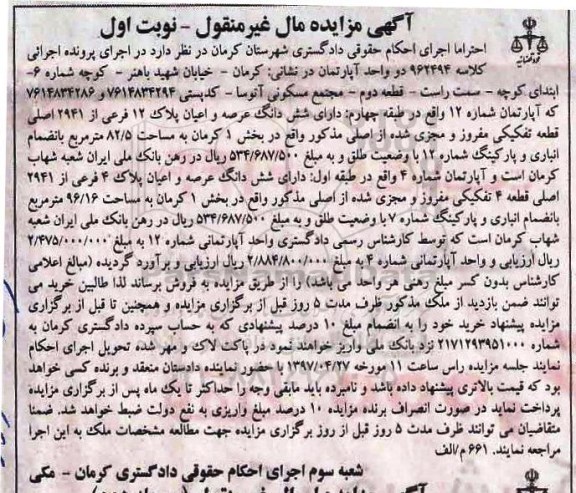 آگهی مزایده مال غیرمنقول - نوبت اول
احتراما اجرای احکام حقوقی دادگستری شهرستان کرمان در نظر دارد در اجرای پرونده اجرائی
کلاسه ۹۶۲۴۹۴ دو واحد آپارتمان در نشانی: کرمان - خیابان شهید باهنر - کوچه شماره ۶-
ابتدای کوچه - سمت راست - قطعه دوم - مجتمع مسکونی آتوسا - کدپستی ۷۶۱۴۸۳۴۲۹۴ و ۷۶۱۴۸۳۴۲۸۶
که آپارتمان شماره ۱۲ واقع در طبقه چهارم: دارای شش دانگ عرصه و اعیان پلاک ۱۲ فرعی از ۲۹۴۱ اصلی
قطعه تفکیکی مفروز و مجزی شده از اصلی مذکور واقع در بخش ۱ کرمان به مساحت ۸۲/۵ مترمربع بانضمام
انباری و پارکینگ شماره ۱۲ با وضعیت طلق و به مبلغ ۵۳۴/۶۸۷/۵۰۰ ریال در رهن بانک ملی ایران شعبه شهاب
کرمان است و آپارتمان شماره ۴ واقع در طبقه اول: دارای شش دانگ عرصه و اعیان پلاک ۴ فرعی از ۲۹۴۱
اصلی قطعه ۴ تفکیکی مفروز و مجزی شده از اصلی مذکور واقع در بخش ۱ کرمان به مساحت ۹۶/۱۶ مترمربع
بانضمام انباری و پارکینگ شماره ۷ با وضعیت طلق و به مبلغ ۵۳۴/۶۸۷/۵۰۰ ریال در رهن بانک ملی ایران شعبه
شهاب کرمان است که توسط کارشناس رسمی دادگستری واحد آپارتمانی شماره ۱۲ به مبلغ ۲/۴۷۵/۰۰۰/۰۰۰
ریال ارزیابی و واحد آپارتمانی شماره ۴ به مبلغ ۲/۸۸۴/۸۰۰/۰۰۰ ریال ارزیابی و برآورد گردیده (مبالغ اعلامی
کارشناس بدون کسر مبلغ رهنی هر واحد می باشد) را از طریق مزایده به فروش برساند لذا طالبین خرید می
توانند ضمن بازدید از ملک مذکور ظرف مدت ۵ روز قبل از برگزاری مزایده و همچنین تا قبل از برگزاری
مزایده پیشنهاد خرید خود را به انضمام مبلغ ۱۰ درصد پیشنهادی که به حساب سپرده دادگستری کرمان به
شماره ۲۱۷۱۲۹۳۹۵۱۰۰۰ نزد بانک ملی واریز خواهند نمود در پاکت لاک و مهر شده تحویل اجرای احکام
نمایند جلسه مزایده راس ساعت ۱۱ مورخه ۱۳۹۷/۰۴/۲۷ با حضور نماینده دادستان منعقد و برنده کسی خواهد
بود که قیمت بالاتری پیشنهاد داده باشد و نامبرده باید مابقی وجه را حداکثر تا یک ماه پس از برگزاری مزایده
پرداخت نماید در صورت انصراف برنده مزایده ۱۰ درصد مبلغ واریزی به نفع دولت ضبط خواهد شد. ضمنا
متقاضیان می توانند ظرف مدت ۵ روز قبل از روز برگزاری مزایده جهت مطالعه مشخصات ملک به این اجرا
مراجعه نمایند. ۶۶۱ م/الف
شعبه سوم اجرای احکام حقوقی دادگستری کرمان - مکی